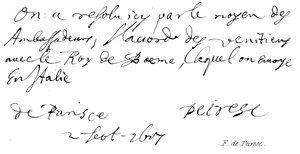 On a resolu icy par le moyen des
Ambassadeurs, l'acord des venitiens
avec le Roy de Boeme, lequel on envoye
En Italie
de Peiresc
2 Sept.
F. de Peiresc.